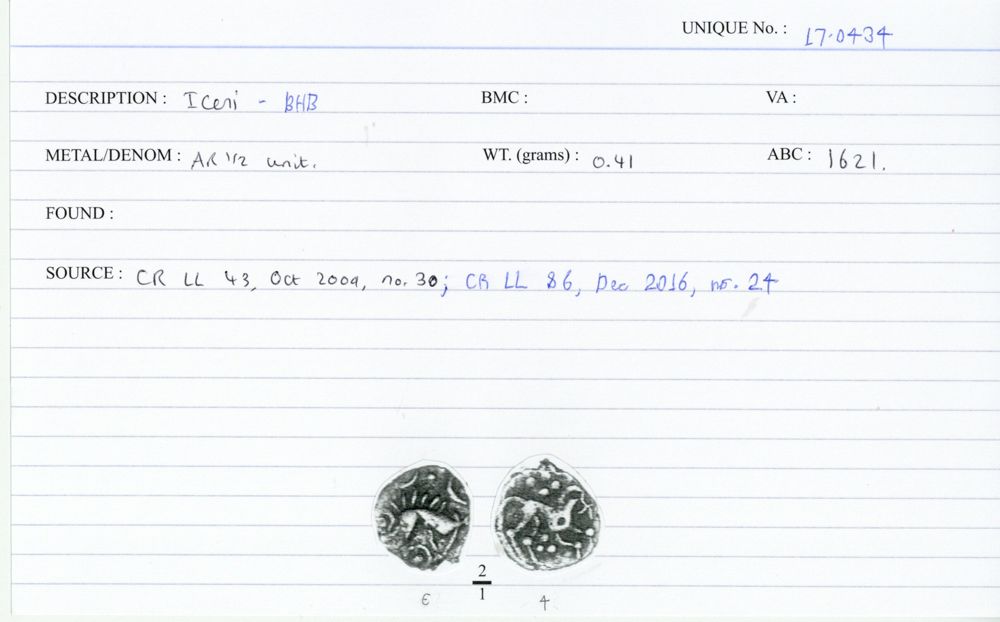 UNIQUE No. : 17.0434
DESCRIPTION : Iceni - BHB BMC : VA :
METAL/DENOM : AR 1/2 unit. WT. (grams) : 0.41 ABC : 1621.
FOUND :
SOURCE : CR LL 43, Oct 2009, no. 30; CR LL 86, Dec 2016, no. 24
2
1